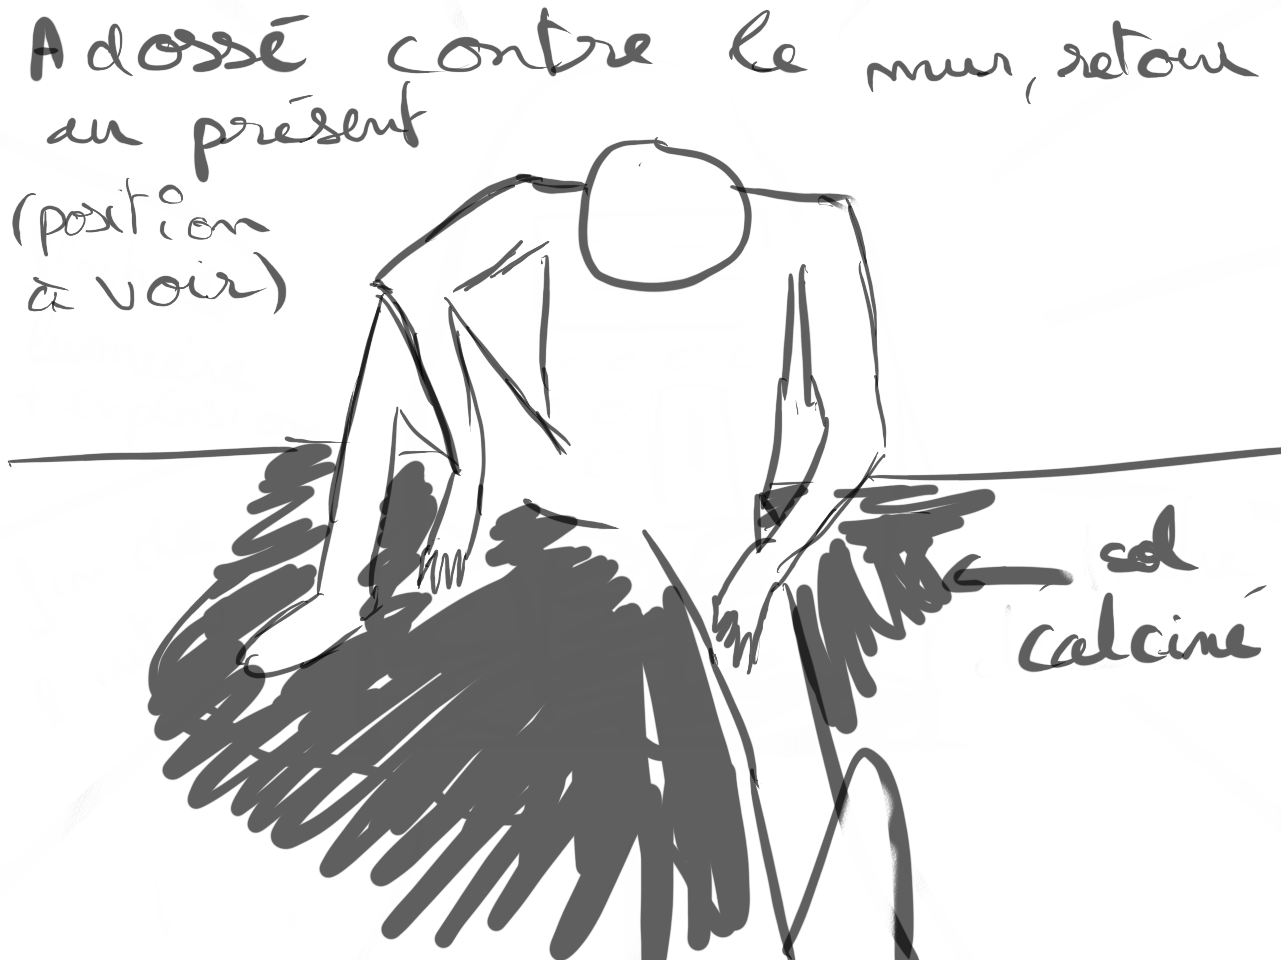 Adossé contre le mur, retour
au présent
(position
à voir)
sol
calciné